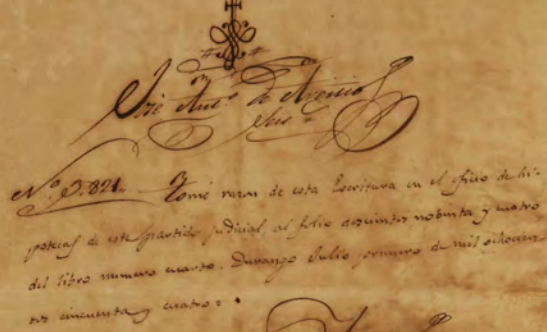 José Ant.º de Asticio
Ess.no
N.º 3.821.. Tomé razon de esta Escritura en el oficio de hi-
potecas de este partido judicial al folio doscientos nobenta y cuatro
del libro numero cuarto. Durango Julio primero de mil ochocien-
tos cincuenta y cuatro =